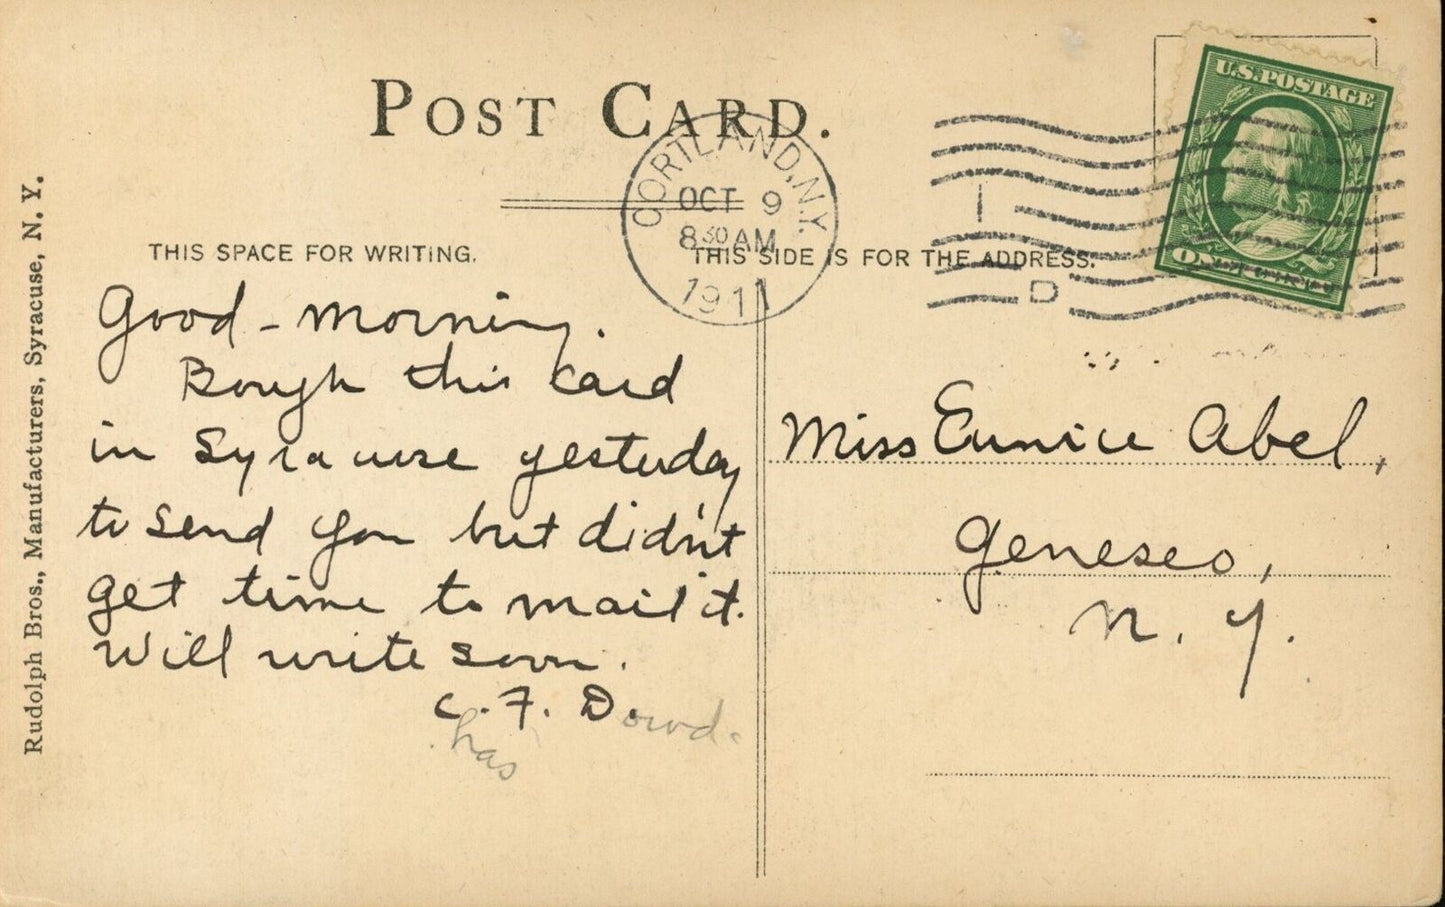 POST CARD.
CORTLAND, N.Y.
OCT 9
8 30 AM
1911
D
U.S. POSTAGE
THIS SPACE FOR WRITING.
THIS SIDE IS FOR THE ADDRESS.
Good-morning.
Bough this card
in Syracuse yesterday
to send you but didn't
get time to mail it.
Will write soon.
C. F. Dowd.
has
Miss Eunice Abel,
Geneseo,
N. Y.
Rudolph Bros., Manufacturers, Syracuse, N. Y.